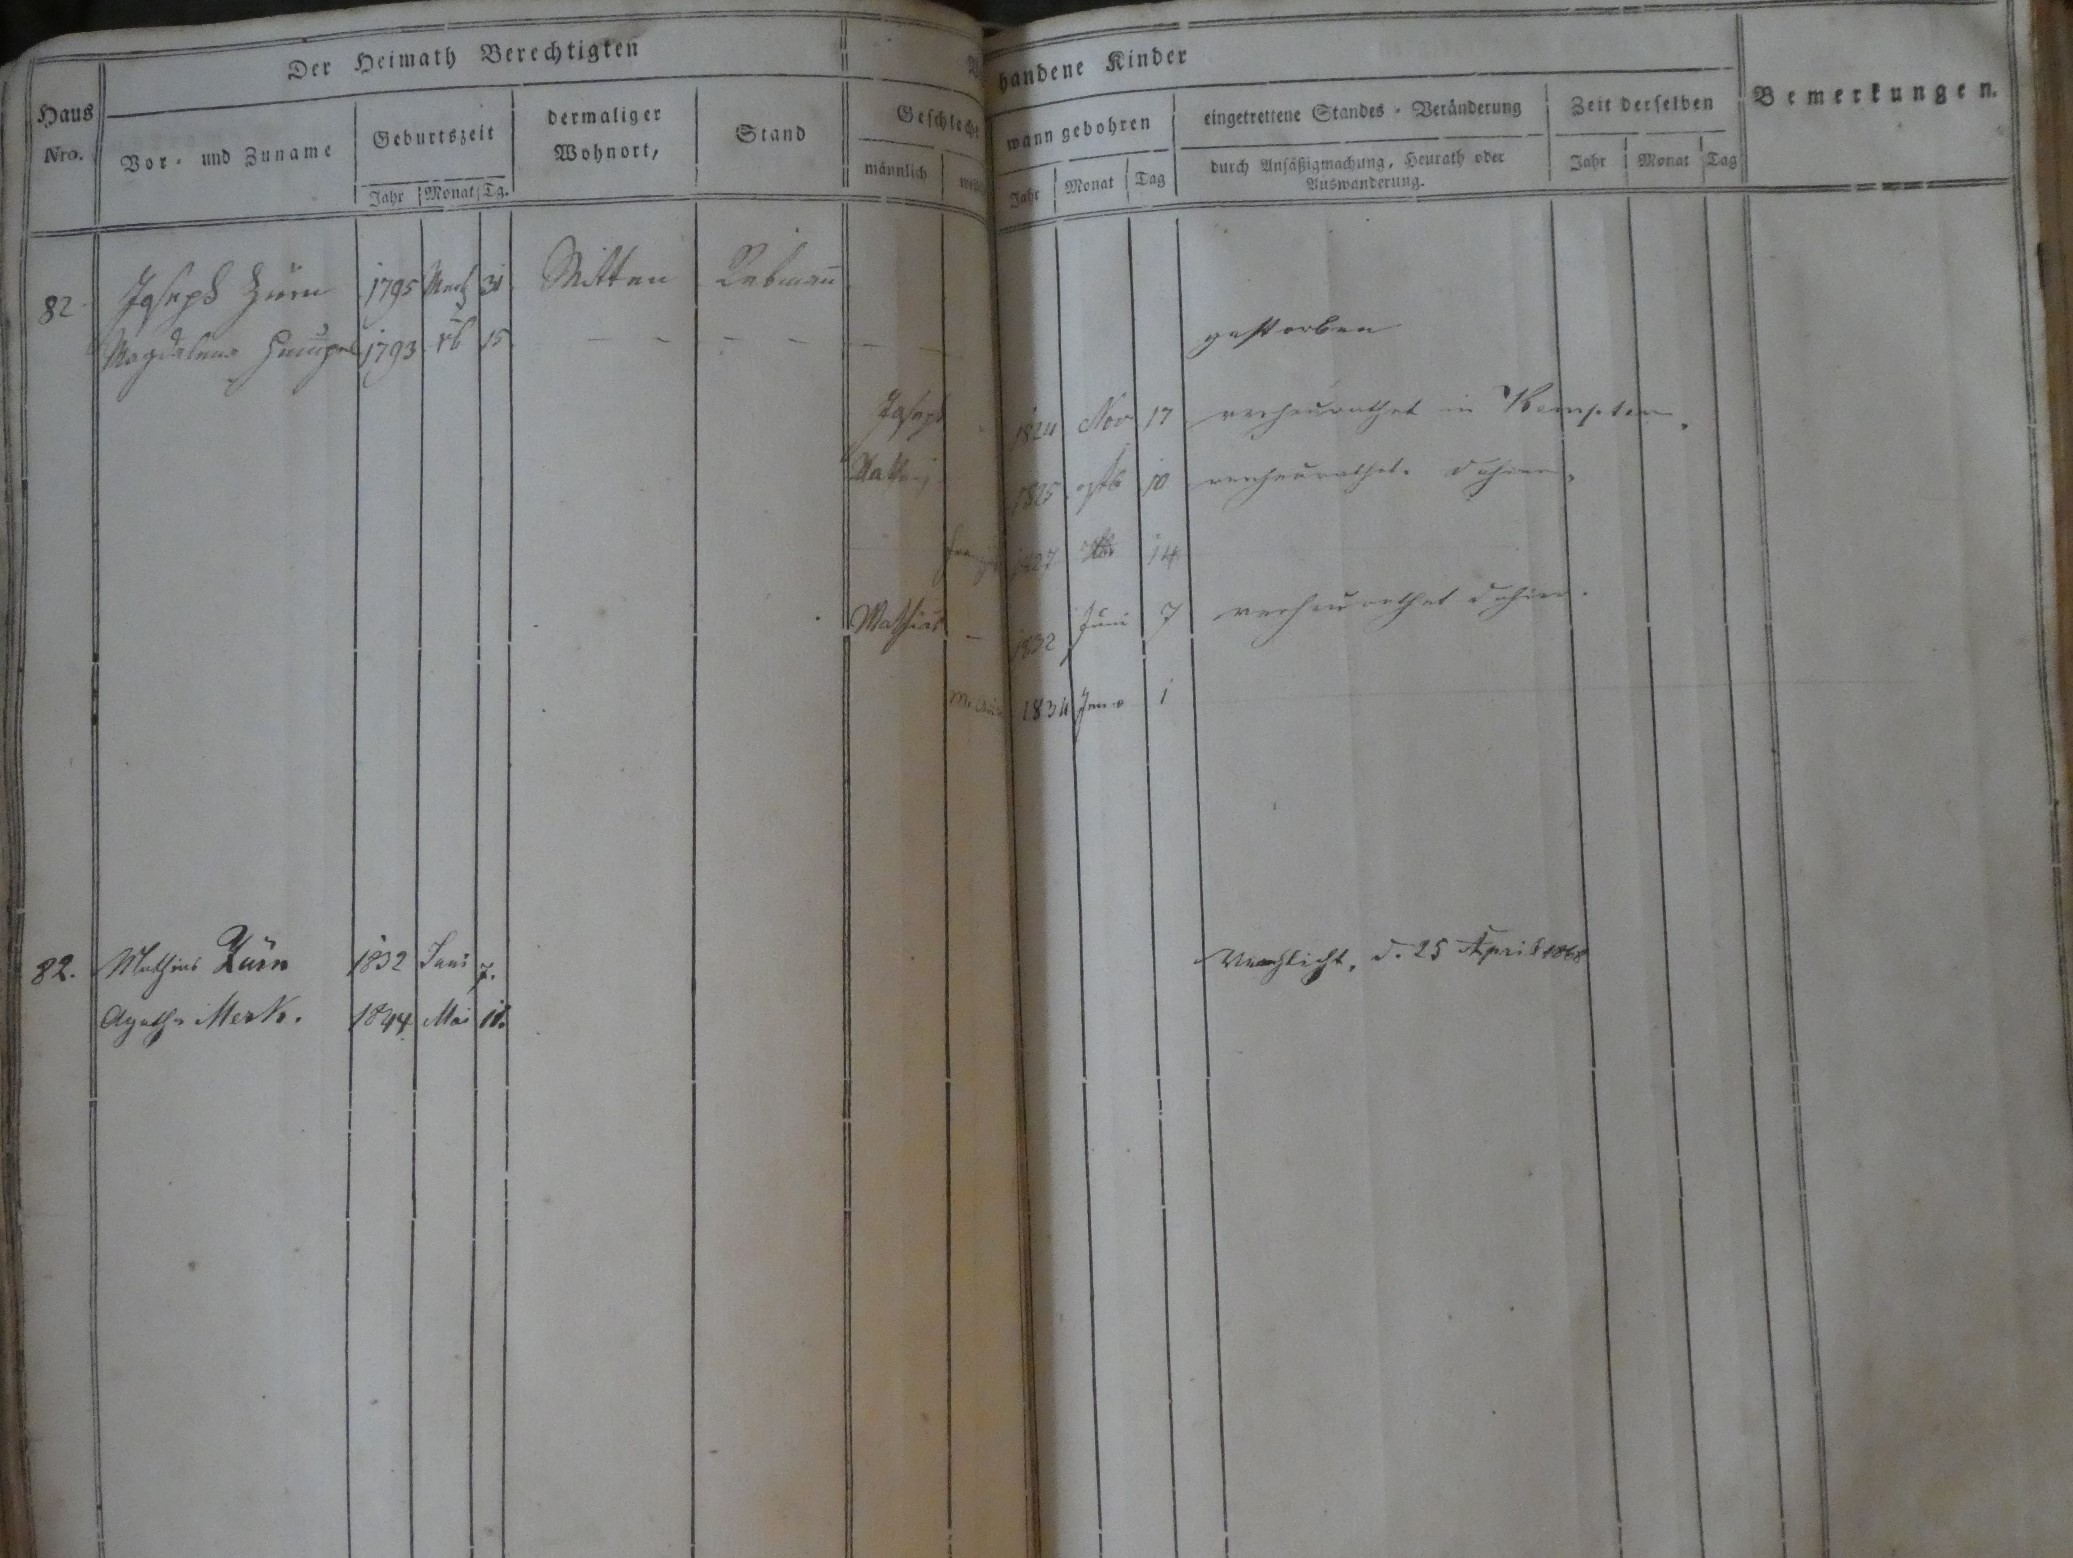 Der Heimath Berechtigten
handene Kinder
Haus Nro.
Vor- und Zuname
Geburtszeit
Jahr Monat Tg.
dermaliger Wohnort,
Stand
Geschlecht
männlich
wann gebohren
Jahr Monat Tag
eingetrettene Standes-Veränderung
durch Ansäßigmachung, Heurath oder
Auswanderung.
Zeit derselben
Jahr Monat Tag
Bemerkungen.
82 Joseph Zürn 1795 Merz 31 Mitten Rebmann
Magdalena 1793 15 gestorben
Joseph 1824 Nov 17 verheurathet in Kempten.
1825 10 verheurathet dahier.
1827 14
Mathias – 1832 Juni 7 verheurathet dahier.
1834 1
82. Mathias Zürn 1832 Juni 7. Verehlicht, d. 25 April 1868
Agatha Merk. 1844 Mai